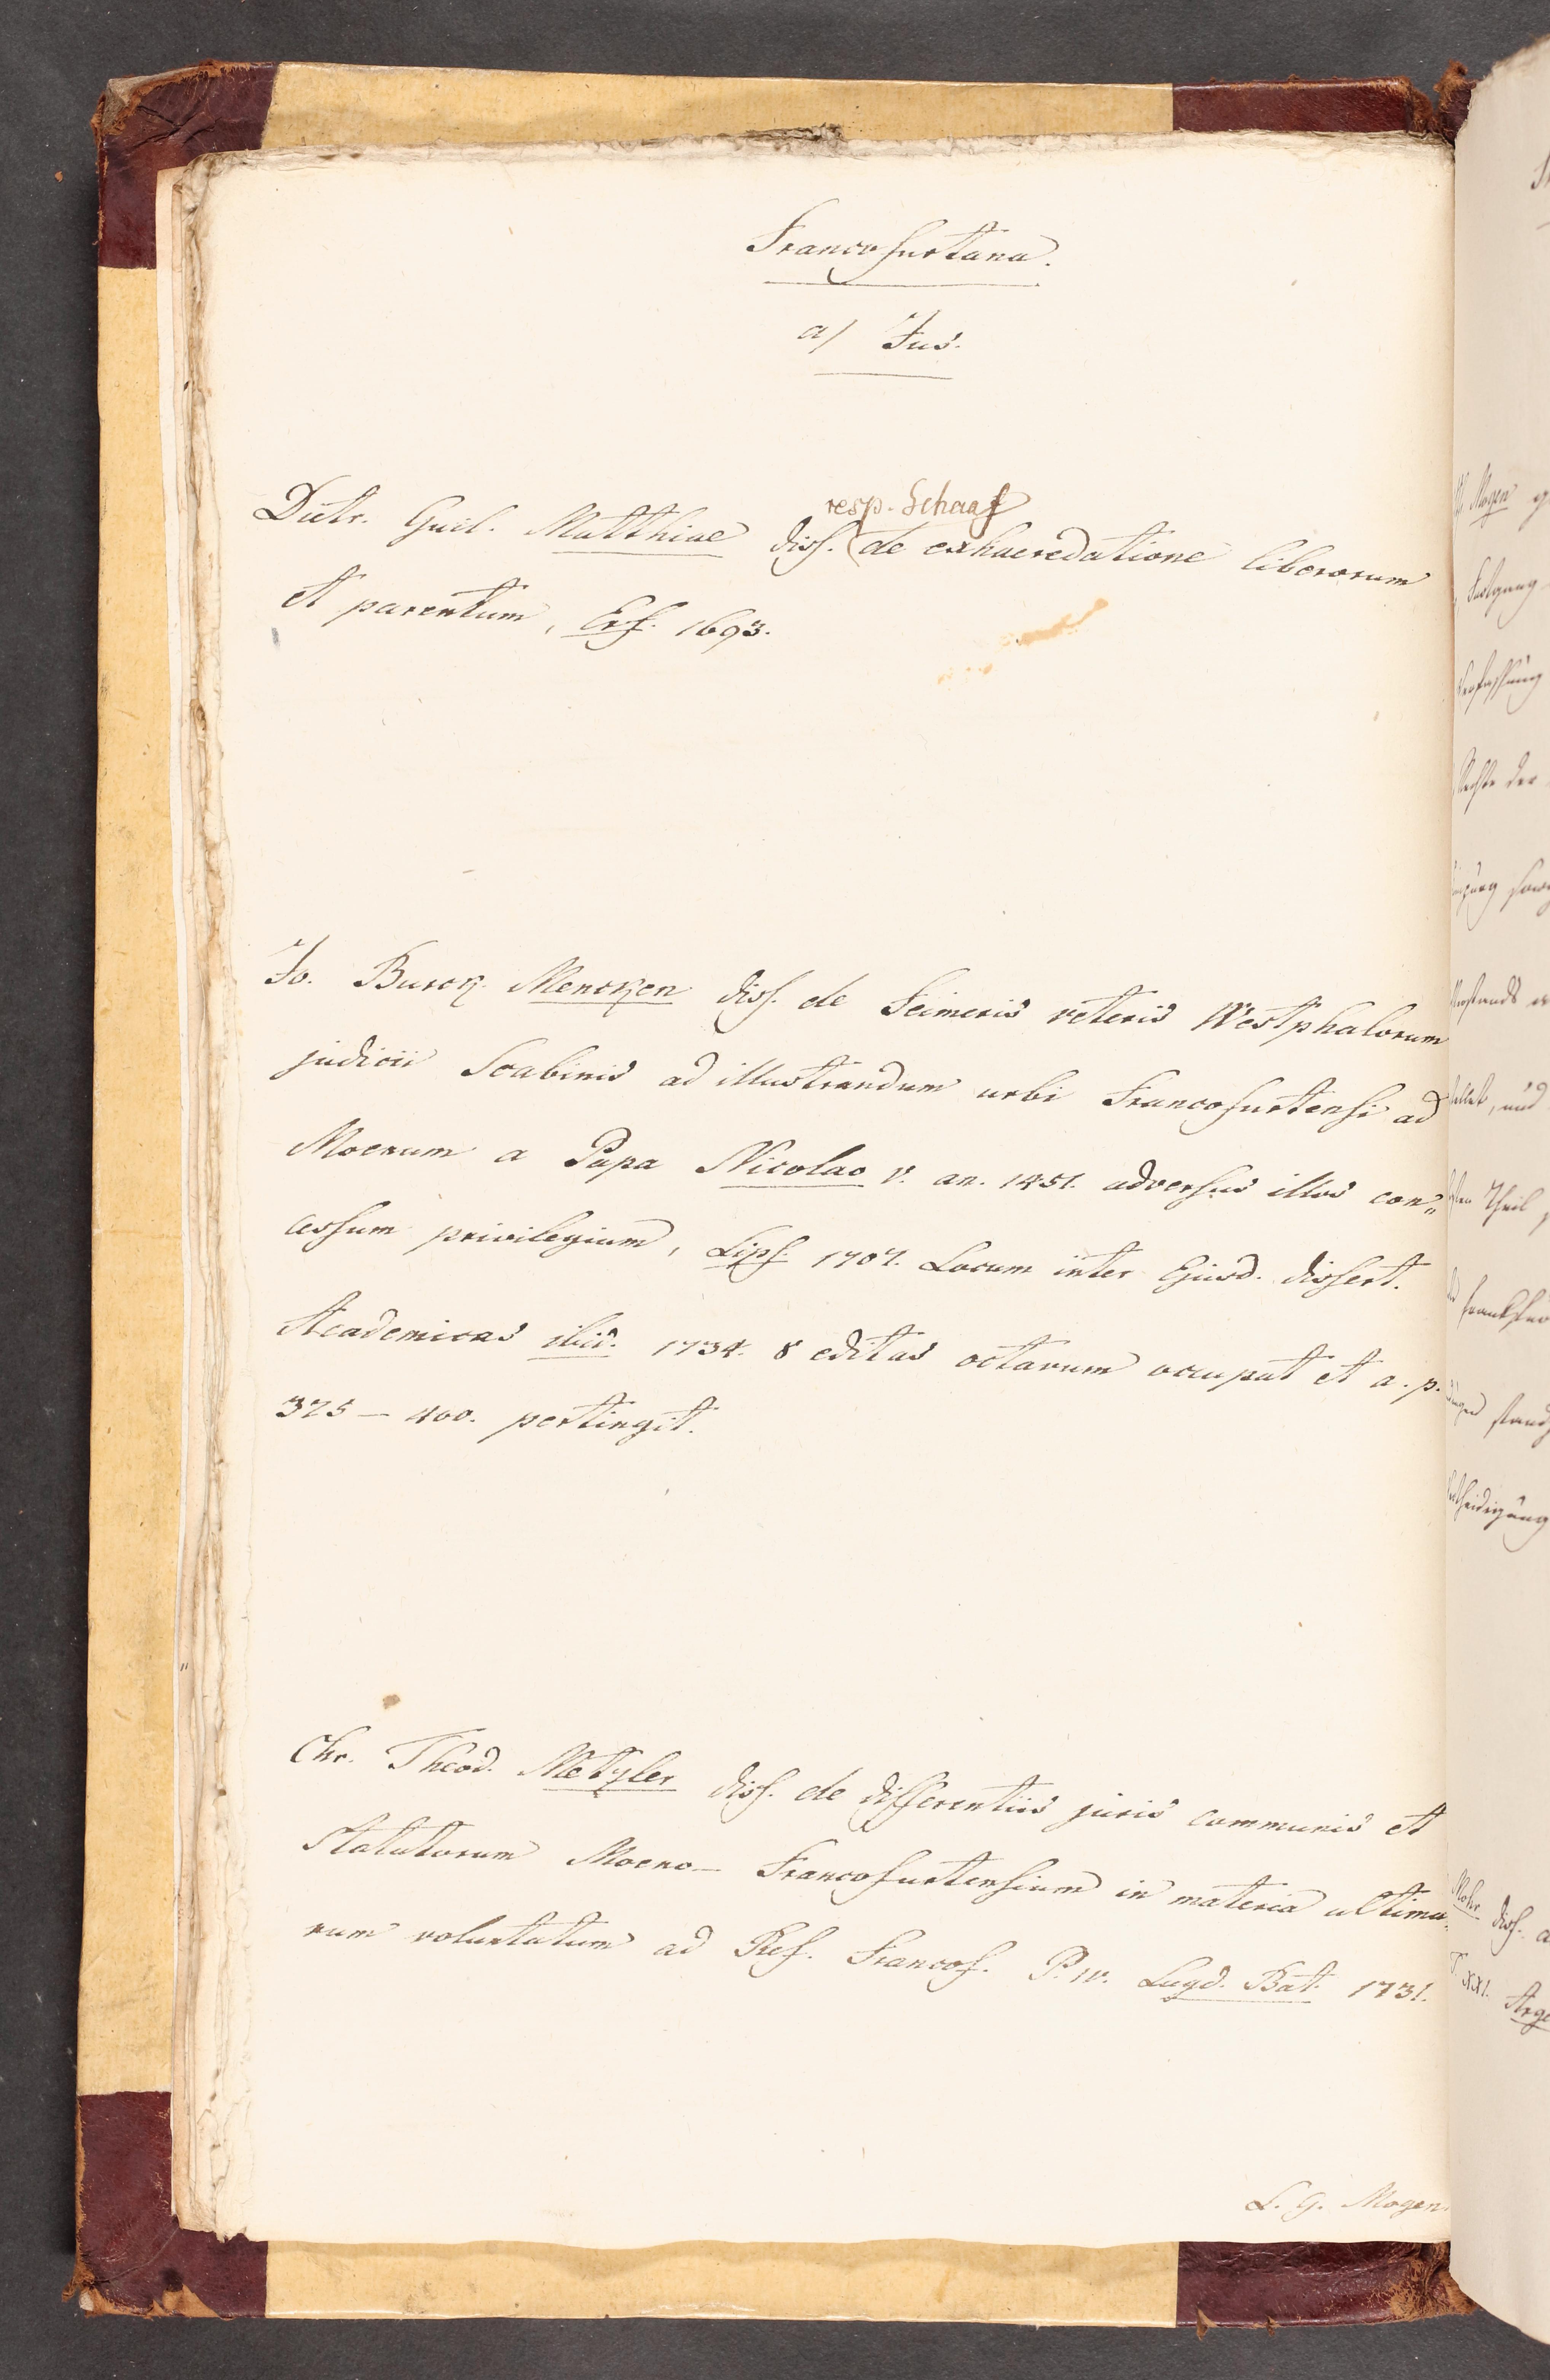 Francofurtana.
a/ Jus.
resp. Schaaf
Dietr. Guil. Matthiae diss. (de exhaeredatione liberorum
et parentum, Erf. 1693.
Jo. Burck. Mencken diss. de Feimeris veteris Westphalorum
judicii Scabinis ad illustrandum urbi Francofurtensi ad
Moenum a Papa Nicolao V. an. 1451. adversus illos con„
cessum privilegium, Lips. 1707. Locum inter Ejusd. dissert.
Academicas ibid. 1734. 8 editas octavum occupat et a. p.
375 — 400. pertingit.
Chr. Theod. Metzler diss. de differentiis juris communis et
Statutorum Moeno— Francofurtensium in materia ultima„
rum voluntatum ad Ref. Francof. P. IV. Lugd. Bat. 1731.
L. G. Mogen.
Mogen
Verfassung
Rechte der
und
Theil
Mohr diss. a
T XXI. Arge